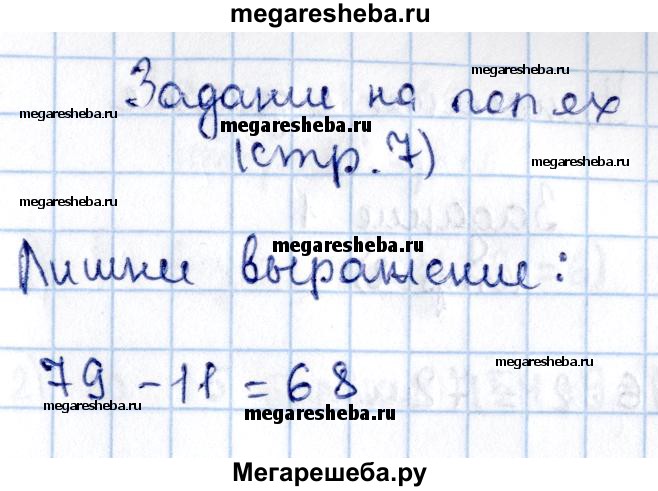 megaresheba.ru
megaresheba.ru
Задание на полях
megaresheba.ru
megaresheba.ru
(стр. 7)
megaresheba.ru
megaresheba.ru
megaresheba.ru
Лишнее выражение:
megaresheba.ru
79 - 11 = 68
megaresheba.ru
megaresheba.ru
megaresheba.ru
Мегарешеба.ру